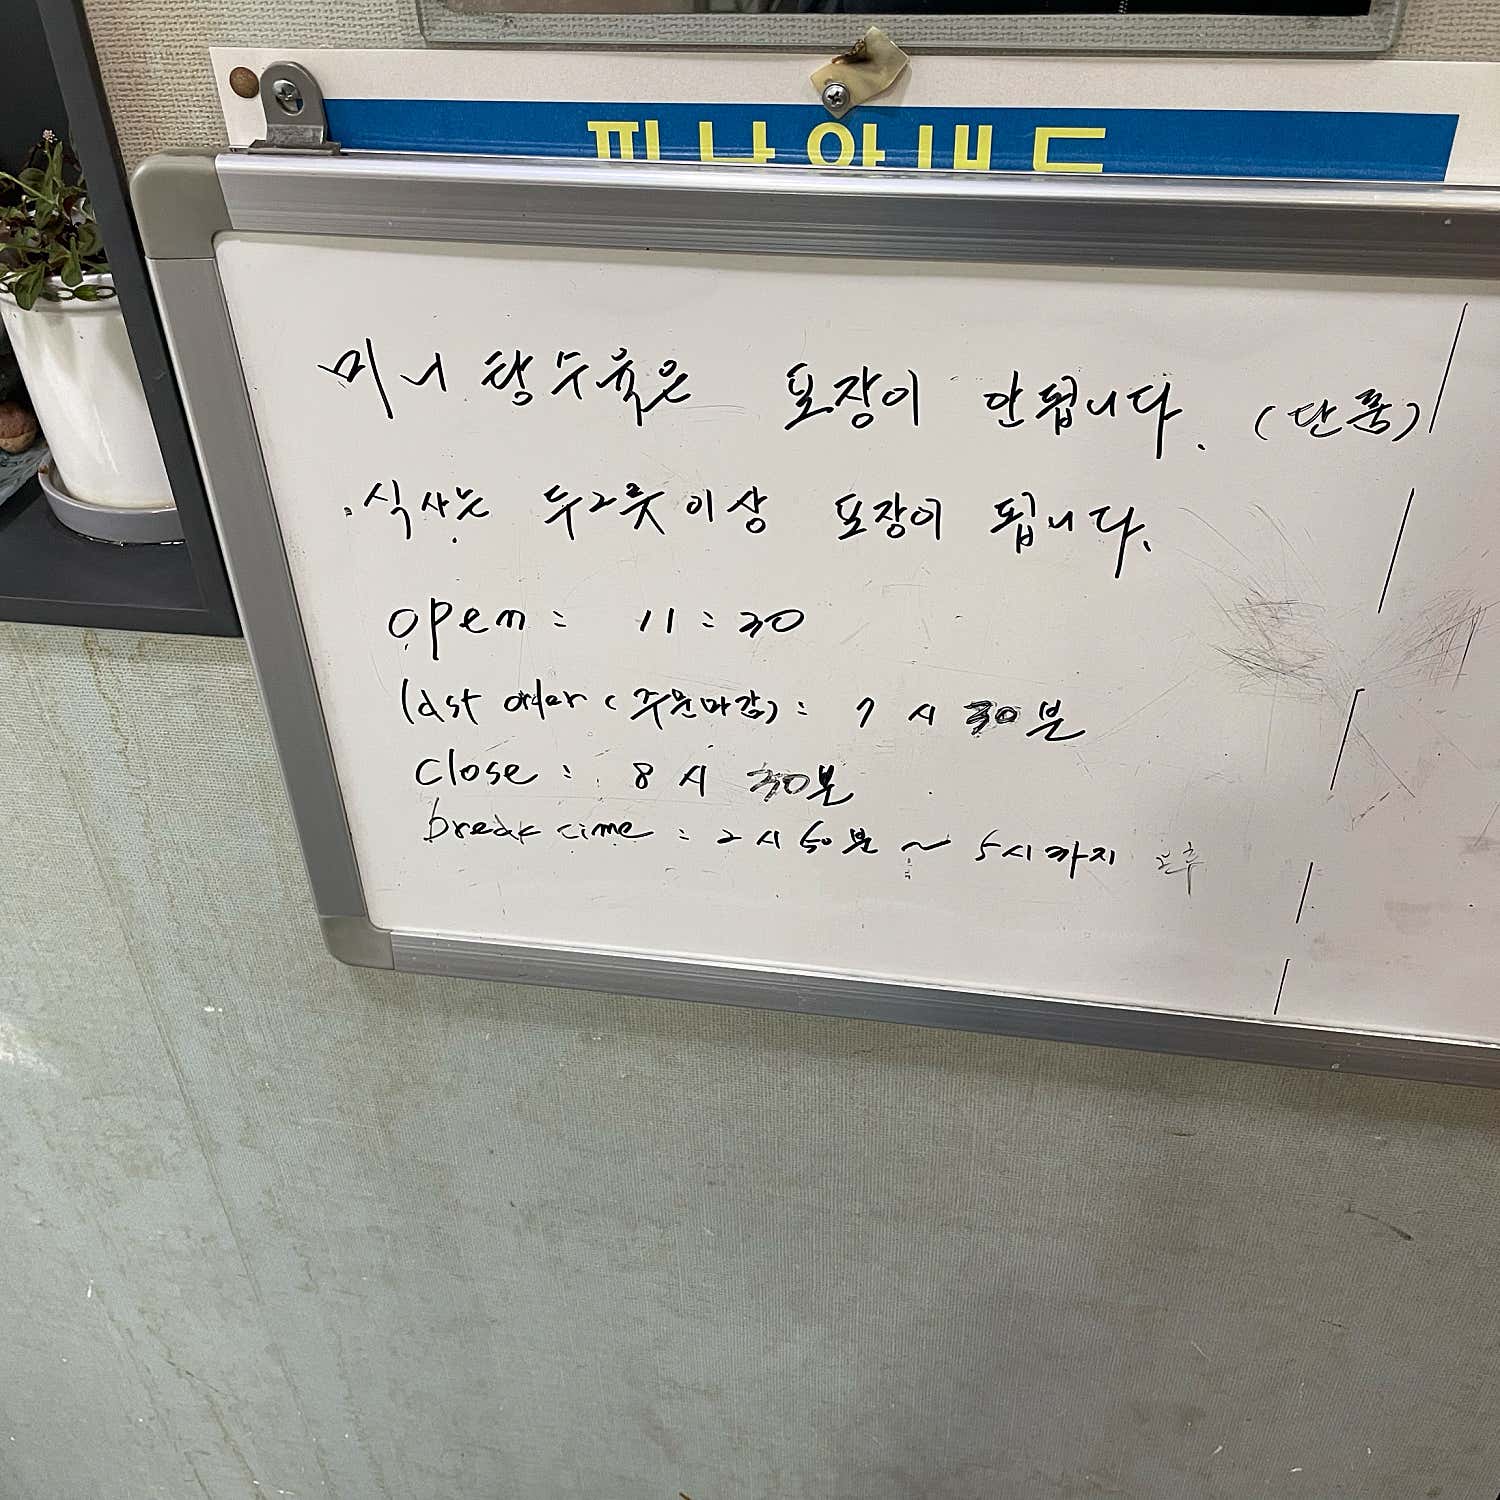 피난안내도
미니탕수육은 포장이 안됩니다. (단품)
.식사는 두그릇이상 포장이 됩니다.
open : 11:30
last order (주문마감) : 7시 30분
close : 8시 30분
break time : 2시 50분 ~ 5시까지 오후